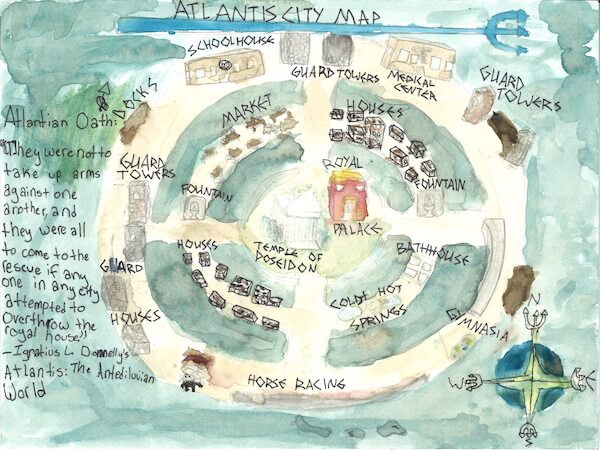 ATLANTIS CITY MAP
SCHOOLHOUSE
GUARD TOWERS
MEDICAL
CENTER
GUARD
TOWERS
DOCKS
MARKET
HOUSES
Atlantian Oath:
"They were not to
take up arms
against one
another, and
they were all
to come to the
rescue if any
one in any city
attempted to
Overthrow the
royal house"
-Ignatius L. Donnelly's
Atlantis: The Antediluvian
World
GUARD
TOWERS
FOUNTAIN
ROYAL
PALACE
FOUNTAIN
HOUSES
TEMPLE OF
POSEIDON
BATHHOUSE
GUARD
HOUSES
COLD+HOT
SPRINGS
GIMNASIA
HORSE RACING
N
W
E
S